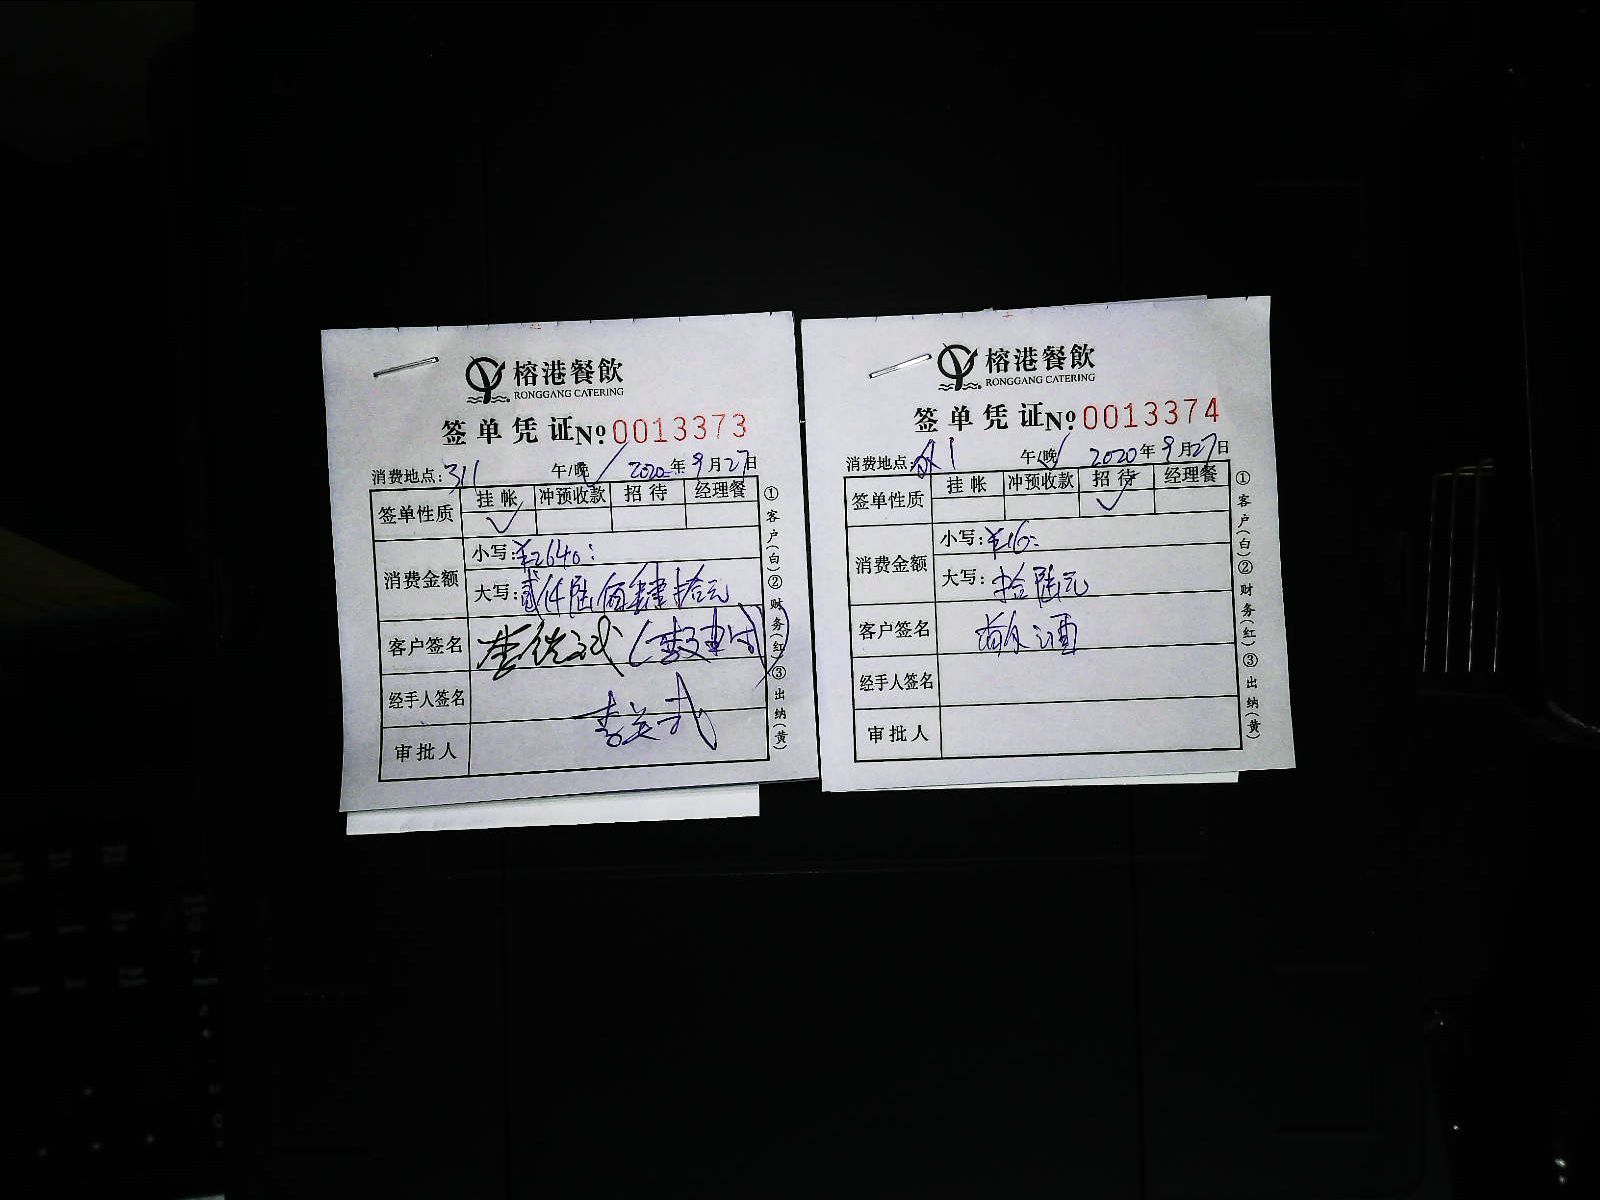 榕港餐飲
RONGGANG CATERING
签单凭证№0013373
消费地点:311 午/晚 2020年9月27日
签单性质 挂帐 冲预收款 招待 经理餐
消费金额
小写:¥2640:
大写:贰仟陆佰肆拾元
客户签名
经手人签名
审批人
①客户(白)②财务(红)③出纳(黄)
榕港餐飲
RONGGANG CATERING
签单凭证№0013374
消费地点: 午/晚 2020年9月27日
签单性质 挂帐 冲预收款 招待 经理餐
消费金额
小写:¥16:
大写:拾陆元
客户签名
经手人签名
审批人
①客户(白)②财务(红)③出纳(黄)